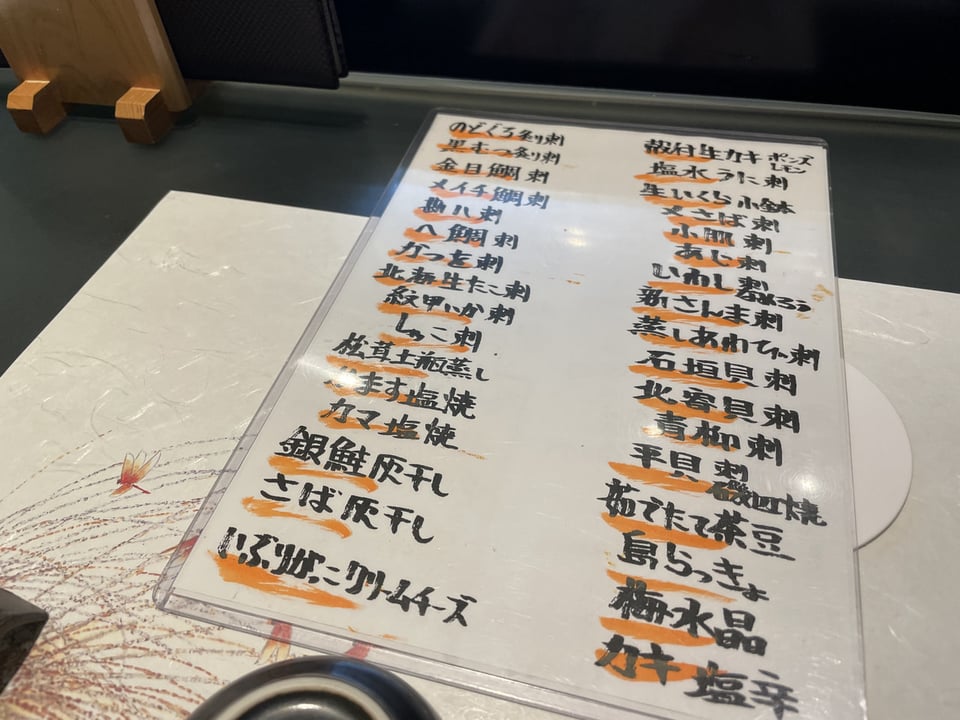 のどぐろ炙り刺
黒むつ炙り刺
金目鯛刺
メイチ鯛刺
勘八刺
八鯛刺
かつを刺
北海生たこ刺
紋甲いか刺
しゃこ刺
松茸土瓶蒸し
かます塩焼
カマ塩焼
銀鮭灰干し
さば灰干し
いぶりがっこクリームチーズ
殻付生カキ ポンズ レモン
塩水うに刺
生いくら小鉢
〆さば刺
小肌刺
あじ刺
いわし刺 なめろう
新さんま刺
蒸しあわび刺
石垣貝刺
北寄貝刺
青柳刺
平貝刺 磯辺焼
茹でたて茶豆
島らっきょ
梅水晶
カキ塩辛